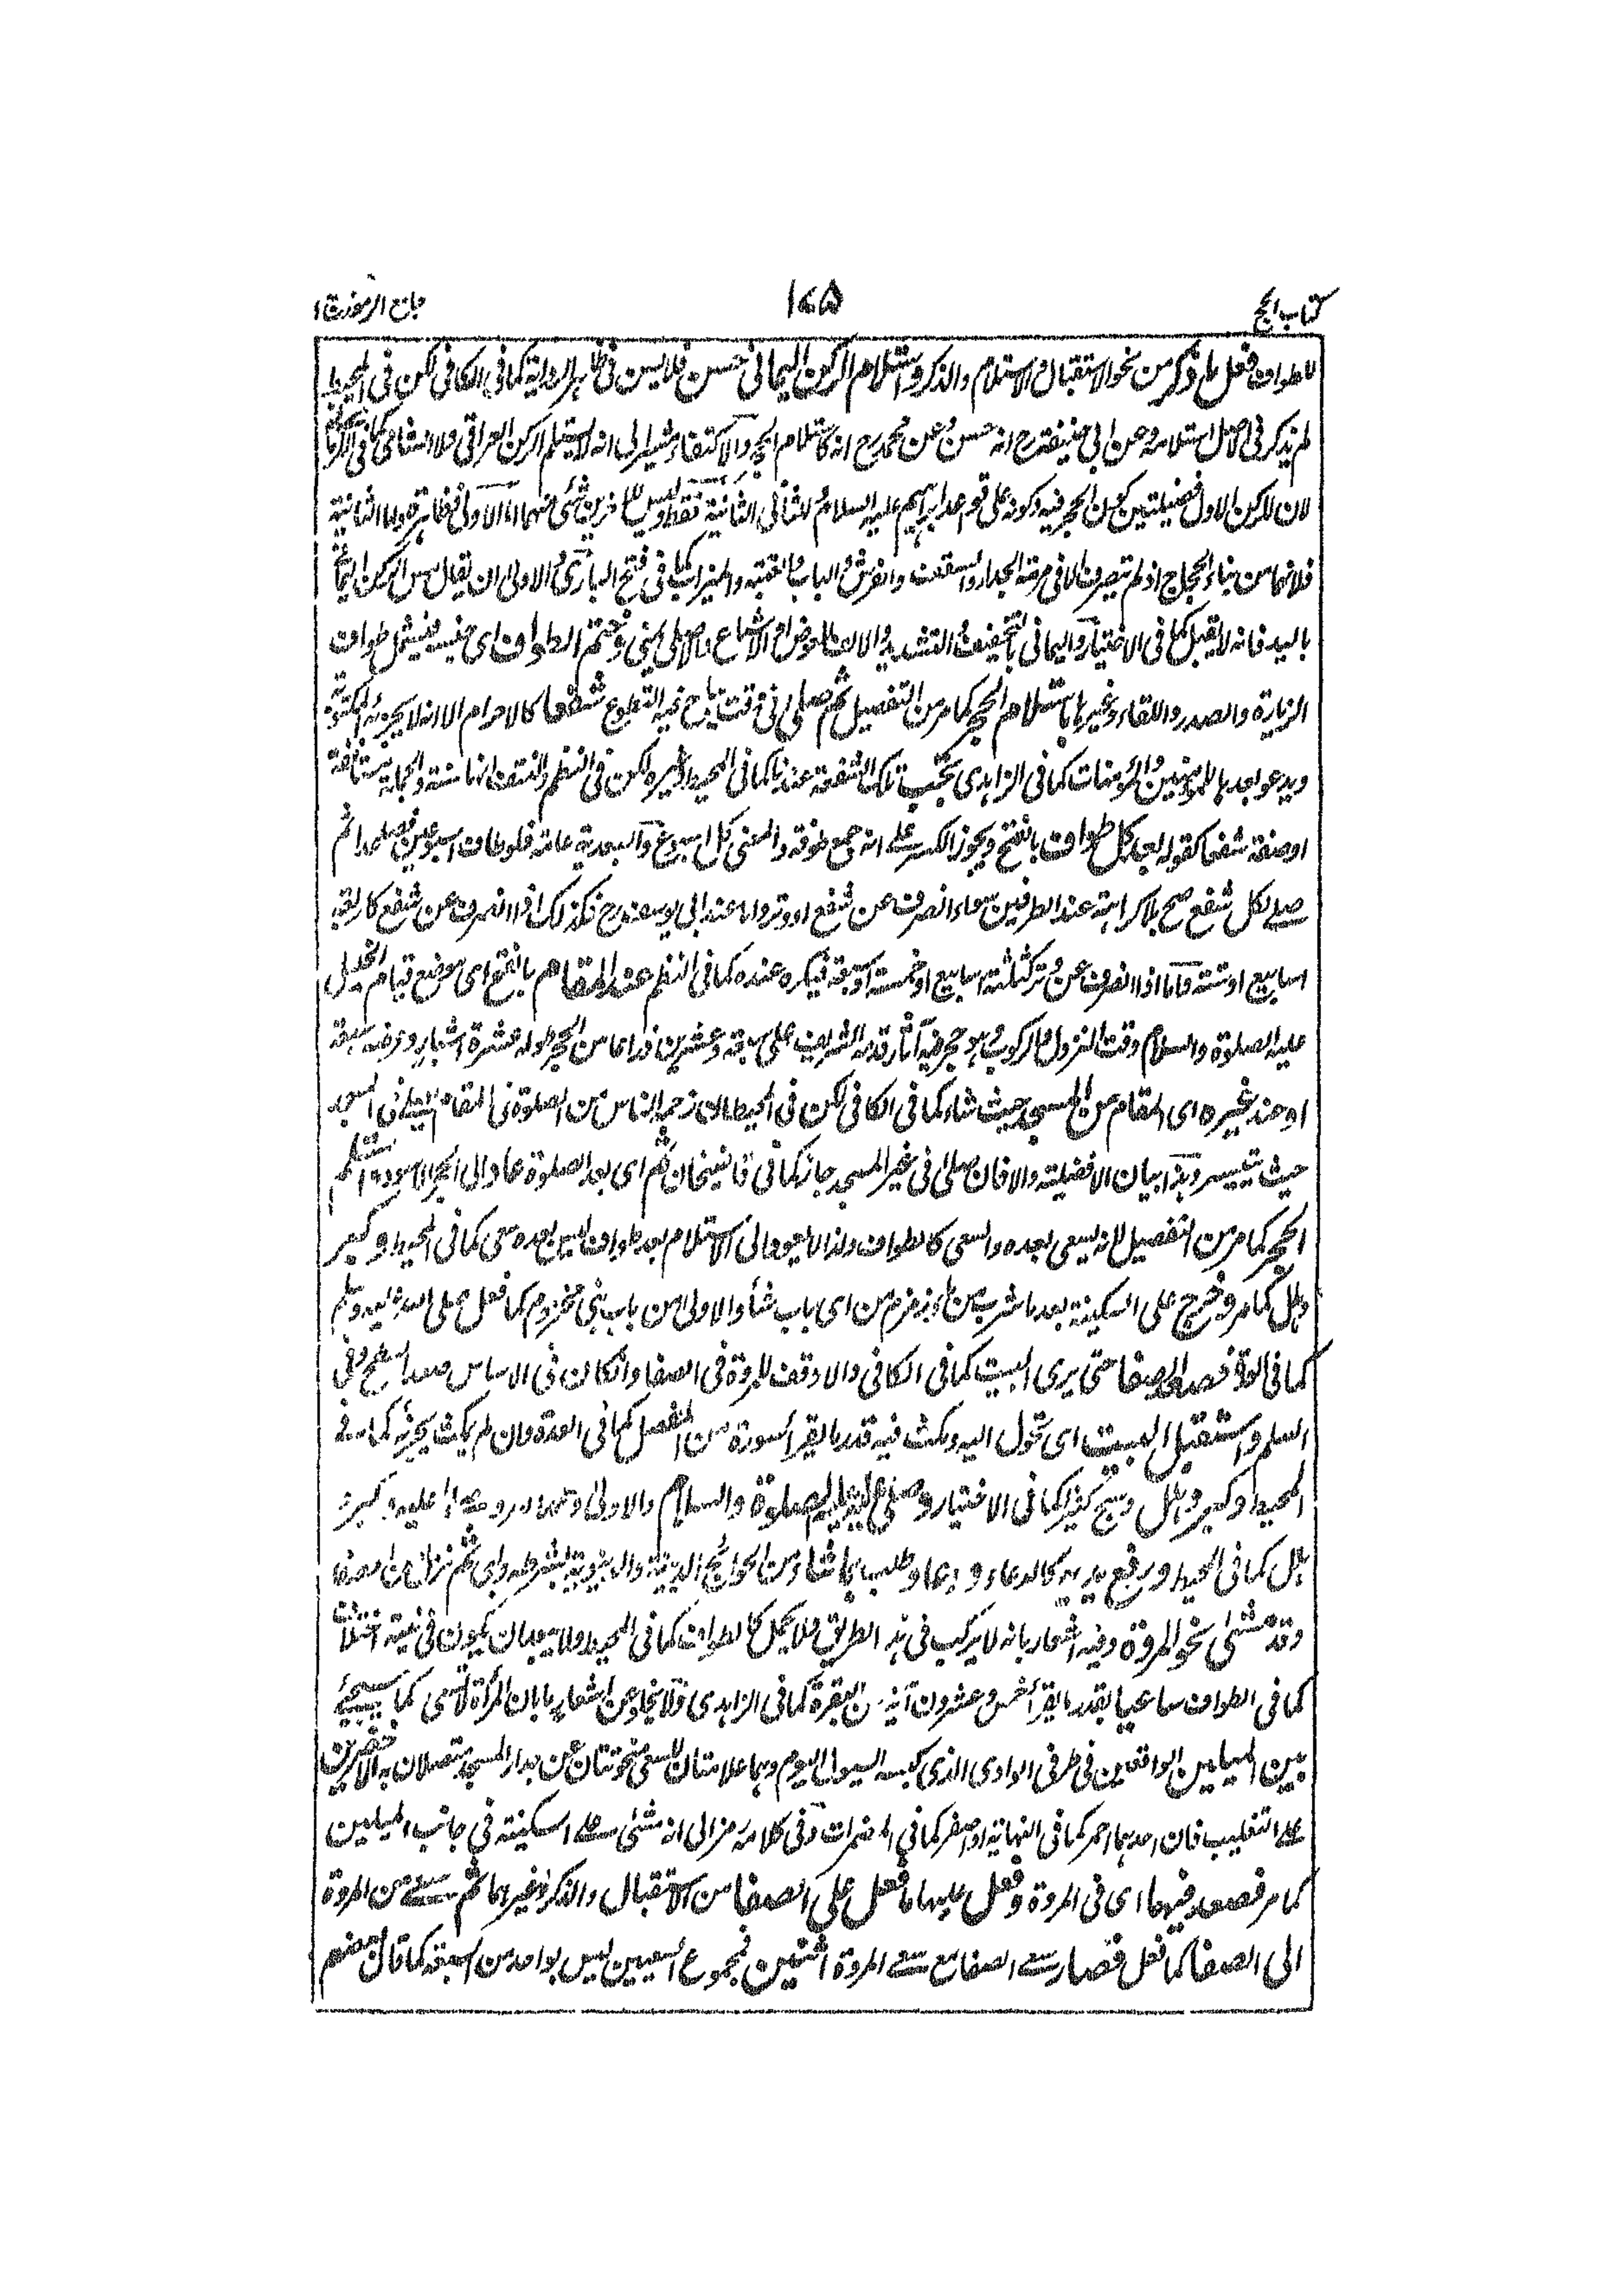 كتاب الحج
١٧٥
جامع الرموز
للطواف فعل ما ذكر من نحو الاستقبال والاستلام والذكر واستلام الركن اليمانى حسن فلا يسن فى ظاهر الرواية كما فى الكافى لكن فى المحيط
لم يذكر فى الاصل استلامه وعن ابى حنيفة رح انه حسن وعن محمد رح انه كاستلام الحجر والاكتفاء مشير الى انه لا يستلم الركن العراقى ولا الشامى كما فى
لان للركن الاول فضيلتين كون الحجر فيه وكونه على قواعد ابراهيم عليه السلام وللثانى الثانية فقط وليس للاخرين شئ منهما اما الاولى فظاهرة واما الثانية
فلانهما من بناء الحجاج اذ لم يتصرف الا فى مرمة الجدار والسقف والفرش والباب والعتبة والميزاب كما فى فتح البارى والاولى ان يقال مس الركن اليمانى
باليد فانه لا يقبل كما فى الاختيار واليمانى بالتخفيف والتشديد والالف للعوض او الاشباع واصله يمنى وختم الطواف اى جنسه فيشمل طواف
الزيارة والصدر واللقاء وغيرها باستلام الحجر كما مر من التفصيل ثم صلى فى وقت يباح فيه التطوع شفعا كالاحرام الا انه لا يجزئه المكتوبة
ويدعو بعدها للمؤمنين والمؤمنات كما فى الزاهدى يجب تلك الشفعة عندنا كما فى المحيط وغيره لكن فى النظم والنتف انها سنة والجملة مستانفة
او صفة شفعا كقوله بعد كل طواف بالفتح ويجوز الكسر على انه جمع طوفة والمعنى كل اسبوع والبعدية عامة فلو طاف اسبوعين فصاعدا ثم
صلى لكل شفع صح بلا كراهة عند الطرفين سواء انصرف عن شفع او وتر واما عند ابى يوسف رح فكذلك اذا انصرف عن شفع كاربعة
اسابيع او ستة واما اذا انصرف عن وتر كثلثة اسابيع او خمسة او سبعة فيكره عنده كما فى النظم عند المقام بالفتح اى موضع قيام الخليل
عليه الصلوة والسلام وقت النزول والركوب وهو حجر فيه آثار قدمه الشريف على سبعة وعشرين ذراعا من الحجر طوله عشرة اشبار وعرضه سبعة
او عند غيره اى المقام من المسجد حيث شاء كما فى الكافى لكن فى المحيط ان زحم الناس من الصلوة فى المقام يصلى فى المسجد
حيث تيسر وهذا بيان الافضلية والا فان صلى فى غير المسجد جاز كما فى قاضيخان ثم اى بعد الصلوة عاد الى الحجر الاسود واستلم
الحجر كما مر من التفصيل لانه يسعى بعده والسعى كالطواف ولذا لا يعود الى الاستلام بعد طواف ليس بعده سعى كما فى المحيط وكبر
وهلل كما مر وخرج على السكينة بعد ما شرب من ماء زمزم من اى باب شاء والاولى من باب بنى مخزوم كما فعل صلى الله عليه وسلم
كما فى فصعد الصفا حتى يرى البيت كما فى الكافى والاوفق للمروة فى الصفا وان كان فى الاساس صعد السطح وفى
السلم واستقبل البيت اى تحول اليه ومكث فيه قدر ما يقرأ سورة من المفصل كما فى العدة وان لم يمكث يجزئه كما فى
المحيط وكبر وهلل وسبح كثيرا كما فى الاختيار وصلى على النبى عليه الصلوة والسلام والاولى وحمد الله واثنى عليه وكبر و
هلل كما فى المحيط ورفع يديه كالدعاء ودعا وطلب ما شاء من الحوائج الدينية والدنيوية بشرطه اى ثم نزل من الصفا
وقد مشى نحو المروة وفيه اشعار بانه لا يركب فى هذه الطريق ولا يحمل كالطواف كما فى المحيط ولا يبعد ان يكون فى نيته اختلاف
كما فى الطواف ساعيا بقدر ما يقرأ خمس وعشرون آية من البقرة كما فى الزاهدى ولا يخلو عن اشعار ما بان المرأة لا تسعى كما سيجئ
بين الميلين الواقعين فى طرفى الوادى الذى كبسه السيول اليوم وهما علامتان للسعى منحوتتان من جدار المسجد متصلان به الاخضرين
على التغليب فان احدهما احمر كما فى النهاية او اصفر كما فى المضمرات وفى كلامه رمز الى انه مشى على السكينة فى جانب الميلين
كما مر فصعد فيها اى فى المروة وفعل عليها ما فعل على الصفا من الاستقبال والذكر وغيرهما ثم سعى من المروة
الى الصفا كما فعل فصار سعى الصفا مع سعى المروة اثنين فمجموع السعيين ليس بواحد من السبعة كما قال بعضهم